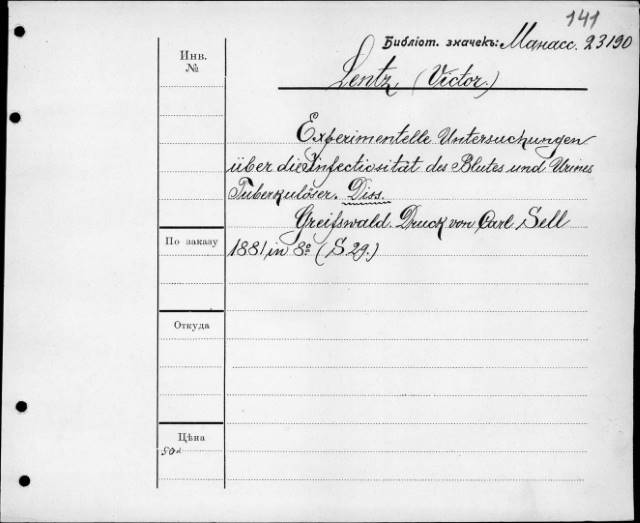 141
Библіот. значекъ: Манасс. 23190
Инв.
№
Lentz, (Victor.)
Experimentelle Untersuchungen
über die Infectiosität des Blutes und Urines
Tuberkulöser. Diss.
Greifswald. Druck von Carl Sell
По заказу
1881, in 8º (S. 29.)
Откуда
Цѣна